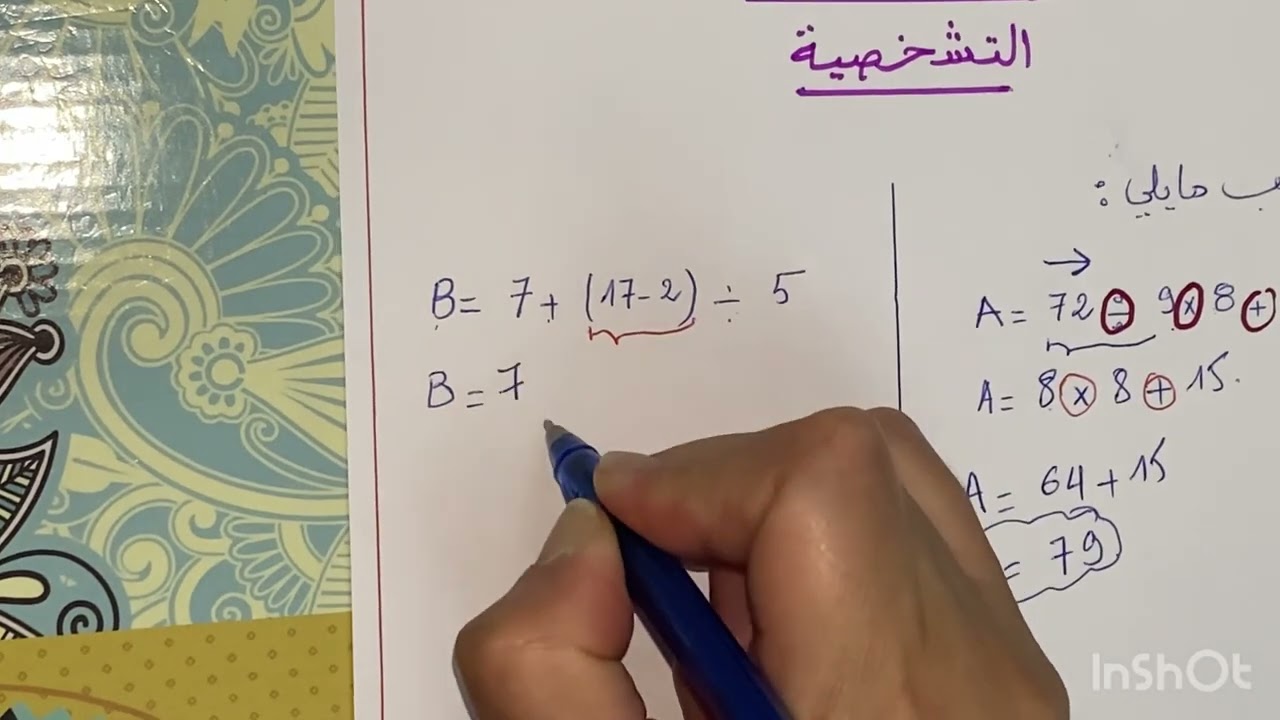 التشخصية
مايلي :
A = 72 ÷ 9 × 8 +
A = 8 × 8 + 15.
A = 64 + 15
= 79
B = 7 + (17 - 2) ÷ 5
B = 7
InShOt